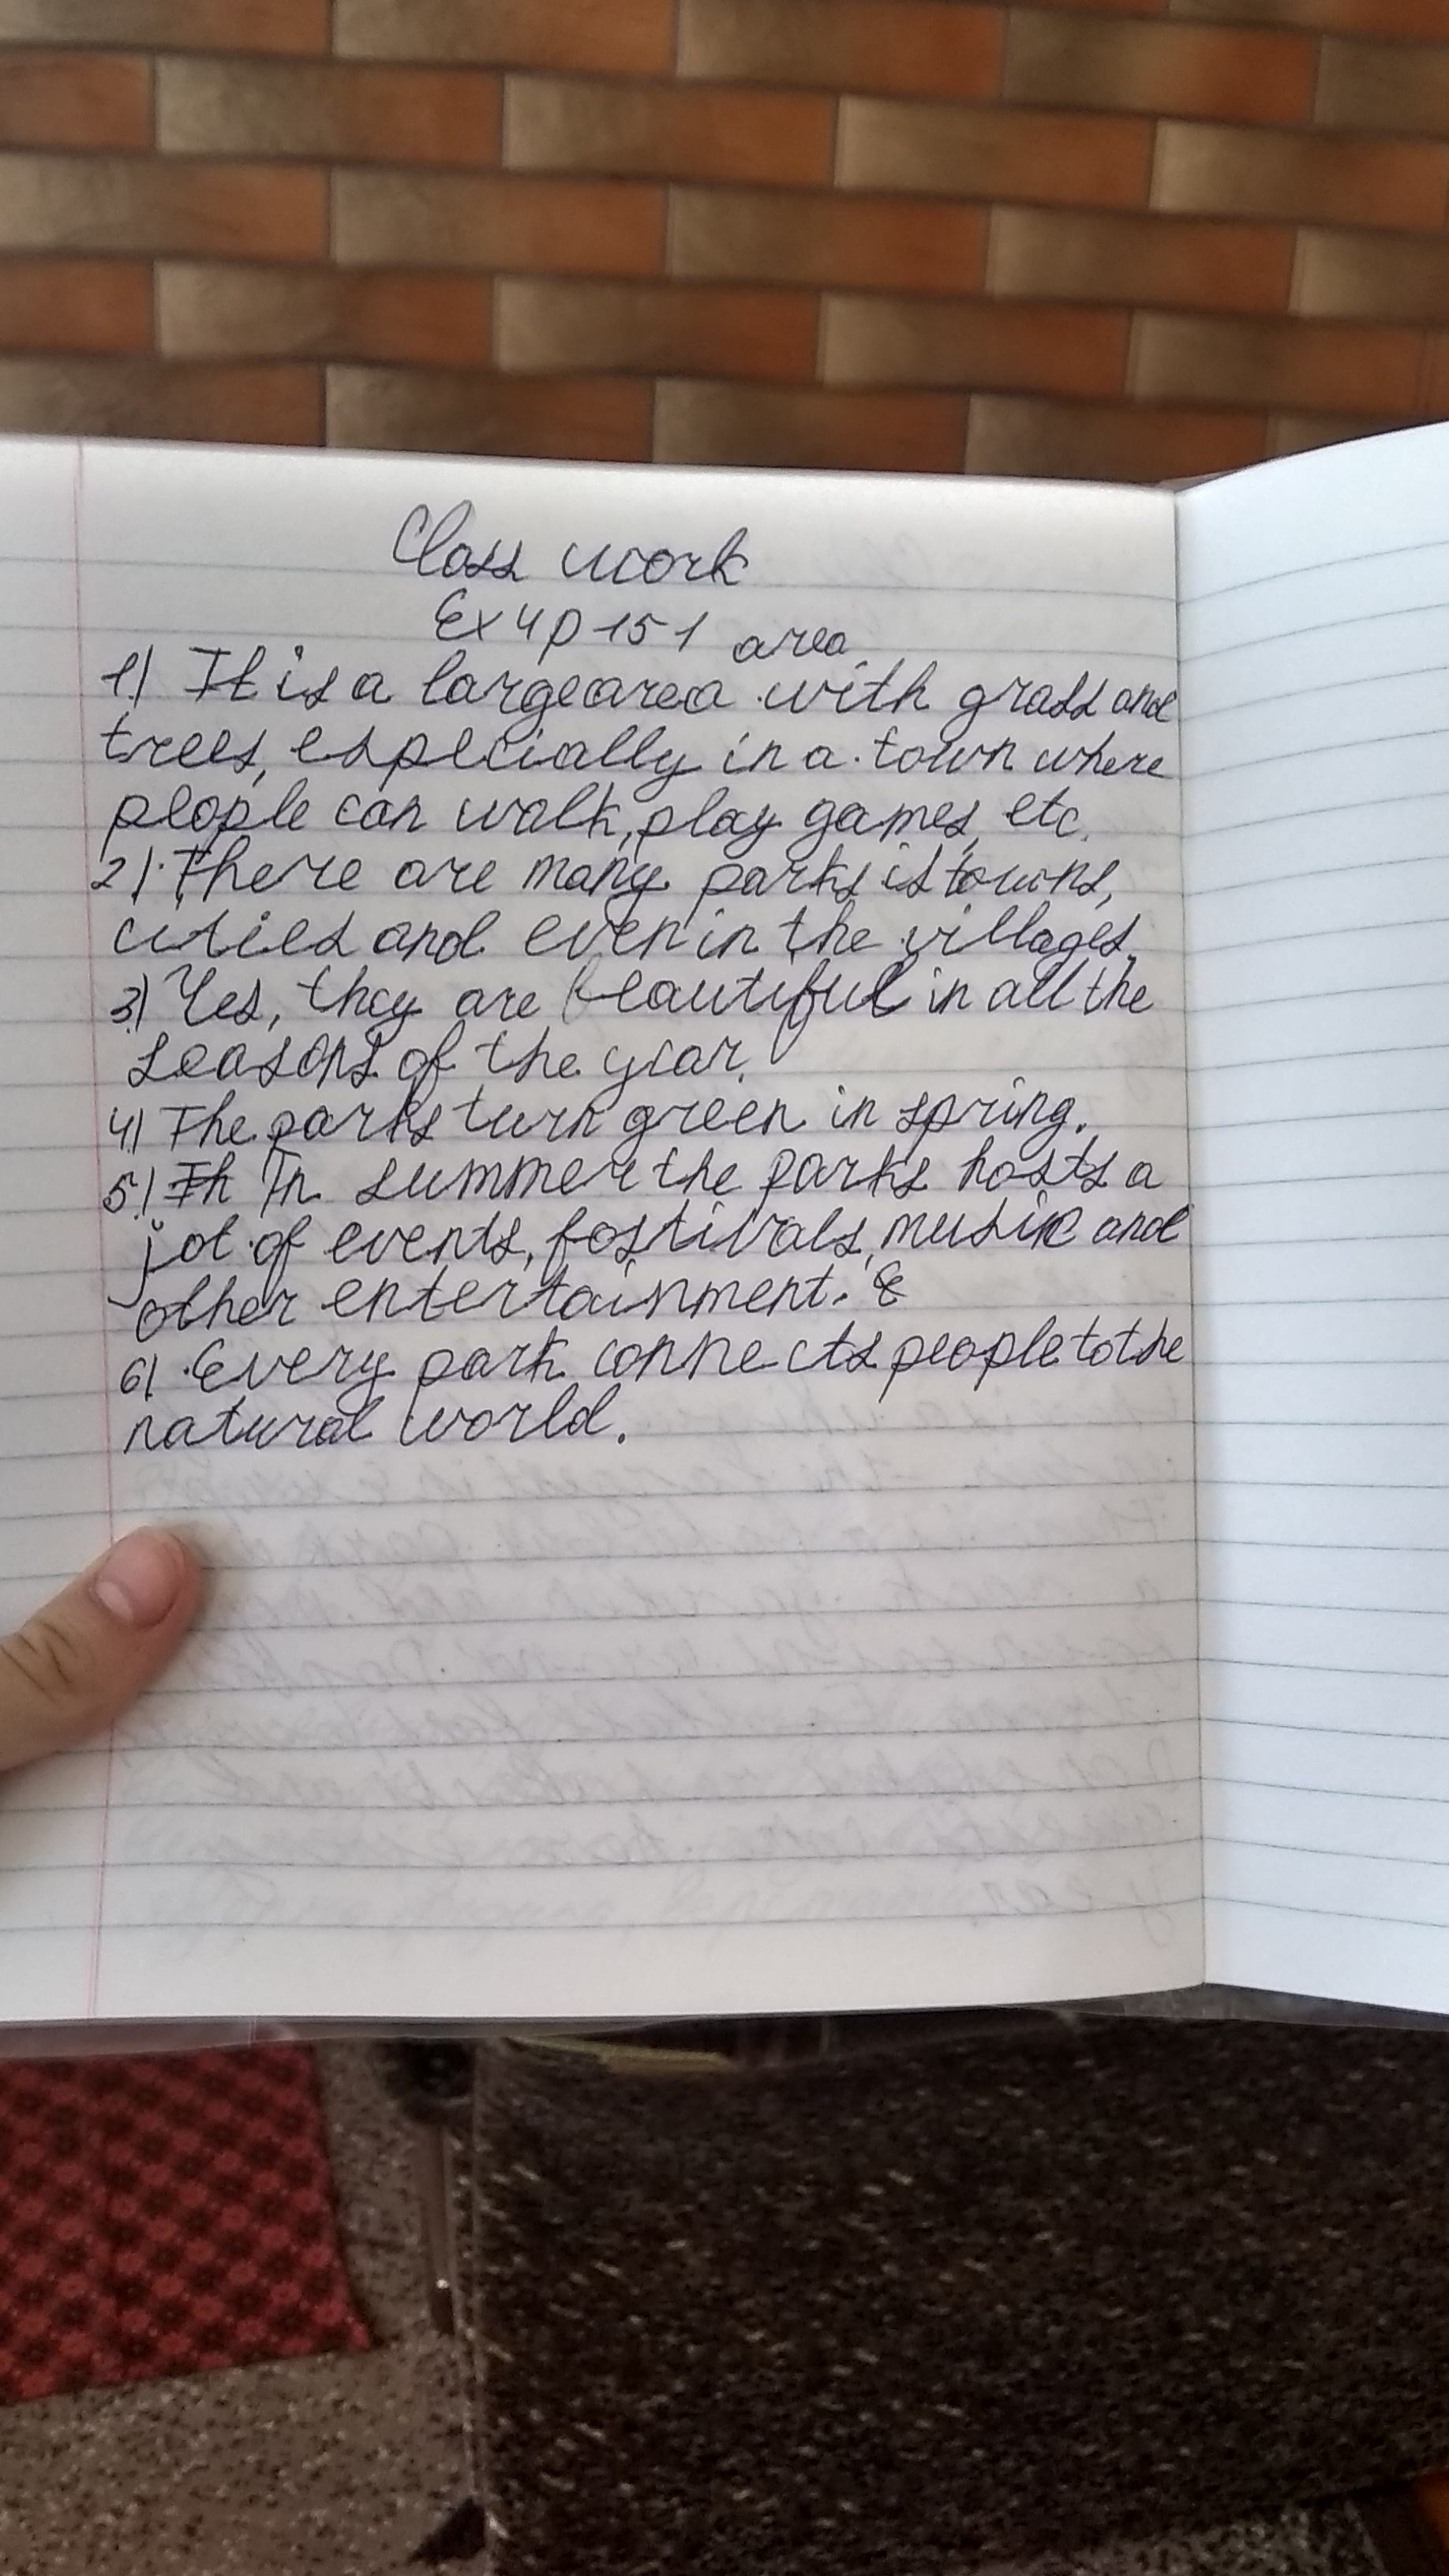 Class work
Ex 4 p 151
area
1) It is a large area with grass and
trees, especially in a town where
people can walk, play games, etc.
2) There are many parks is towns,
cities and even in the villages.
3) Yes, they are beautiful in all the
seasons of the year.
4) The parks turn green in spring.
5) Th In summer the parks hosts a
lot of events, fostivals, music and
other entertainment. &
6) Every park connects people to the
natural world.